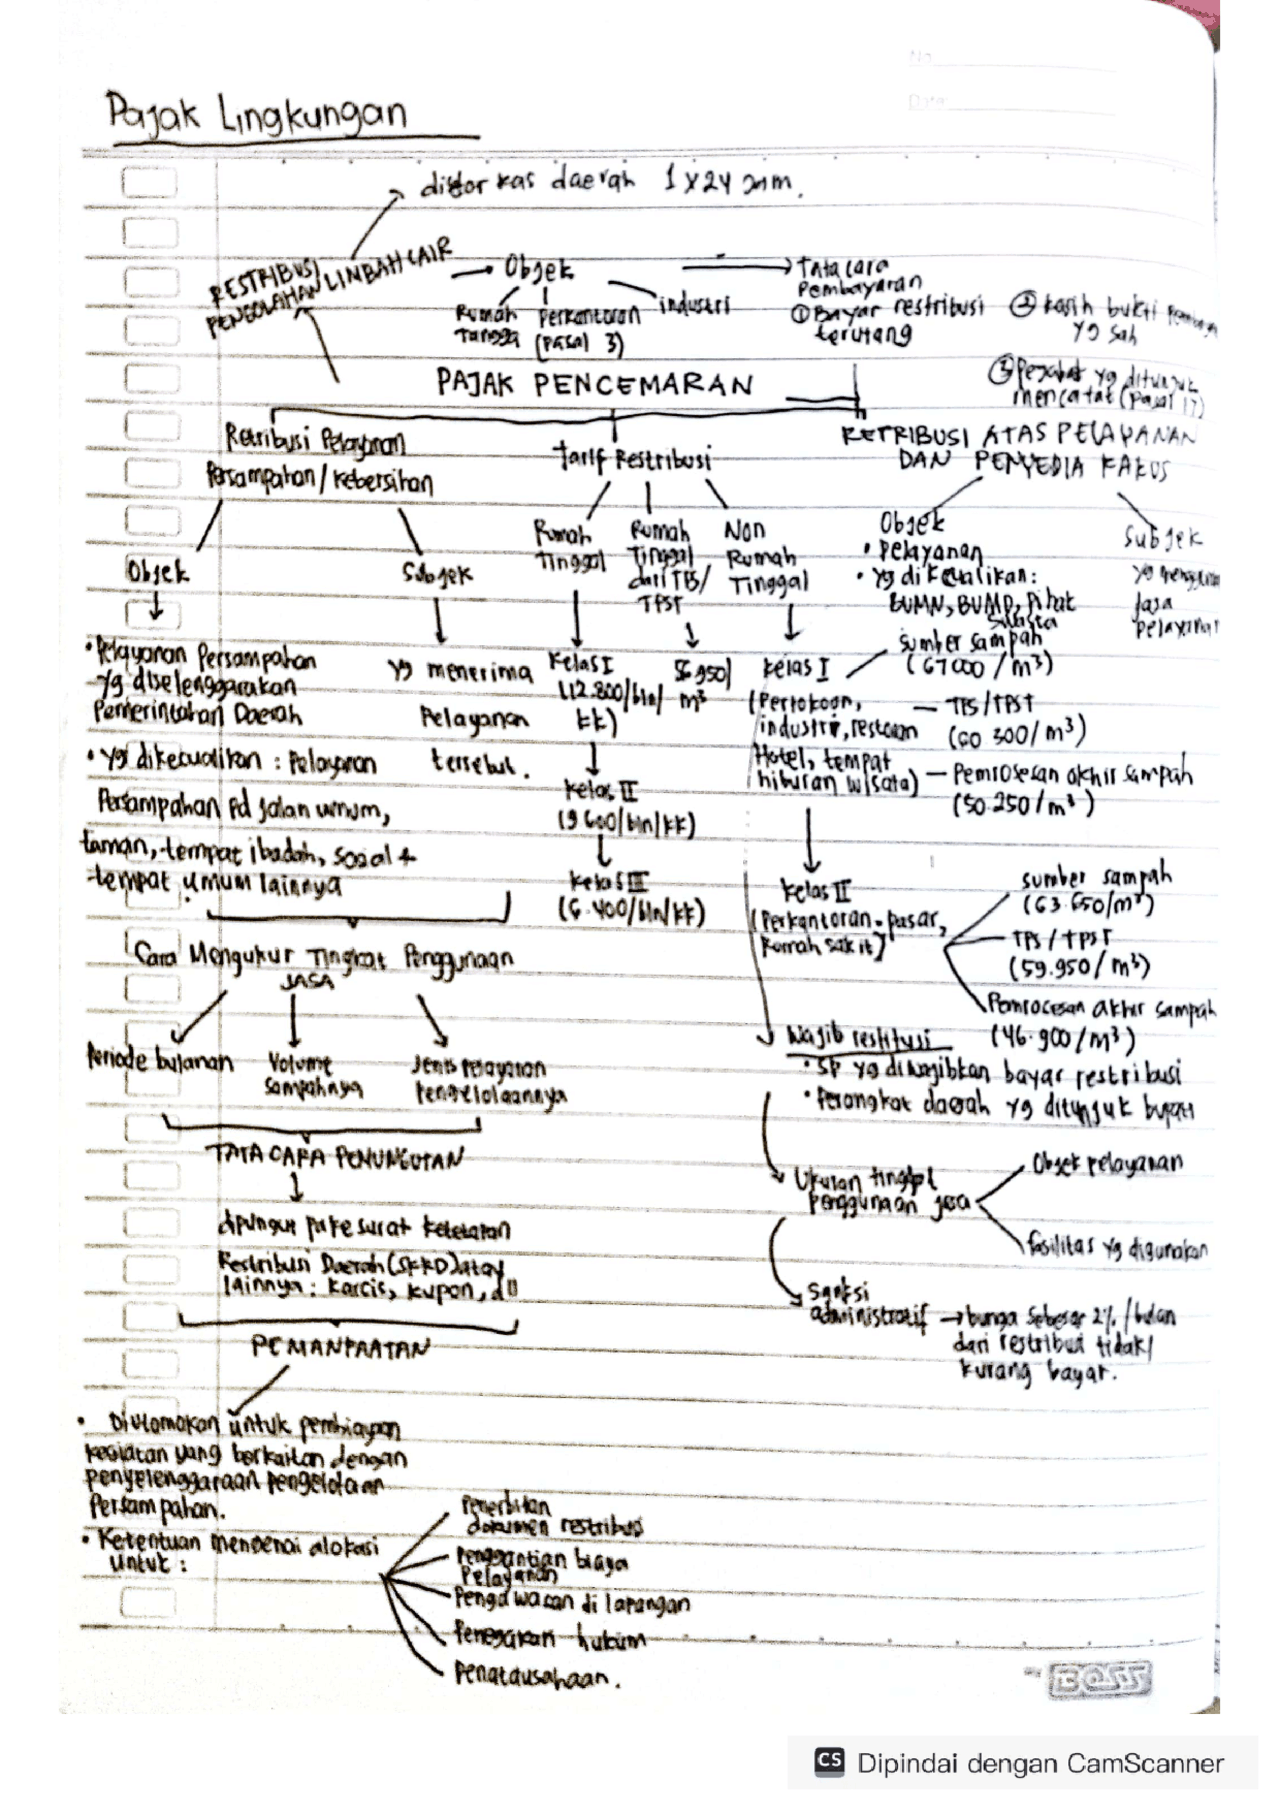 No
Date
Pajak Lingkungan
disetor kas daerah 1 x 24 jam.
RESTRIBUSI
PENGOLAHAN LIMBAH CAIR
Objek
Rumah
Tangga
Perkantoran
(Pasal 3)
industri
Tata cara
Pembayaran
① Bayar restribusi
terutang
② kasih bukti
yg sah
③ Pejabat yg ditunjuk
mencatat (Pasal 17)
PAJAK PENCEMARAN
Retribusi Pelayanan
Persampahan / kebersihan
Tarif Restribusi
RETRIBUSI ATAS PELAYANAN
DAN PENYEDIA KAKUS
Objek
Subjek
Rumah
Tinggal
Rumah
Tinggal
dari TPS/
TPST
Non
Rumah
Tinggal
Objek
• Pelayanan
• yg dikecualikan:
BUMN, BUMD, Pihak
Swasta
Subjek
yg
Jasa
Pelayanan
• Pelayanan Persampahan
yg diselenggarakan
Pemerintahan Daerah
• yg dikecualikan : Pelayanan
Persampahan pd jalan umum,
taman, tempat ibadah, sosial +
tempat umum lainnya
yg menerima
Pelayanan
tersebut.
Kelas I
(12.800/bln/
kk)
kelas II
(9.600/bln/kk)
kelas III
(6.400/bln/kk)
m³
kelas I
(Pertokoan,
industri, restoran
Hotel, tempat
hiburan wisata)
sumber sampah
(67000 / m³)
TPS/TPST
(60 300/m³)
Pemrosesan akhir sampah
(50.250/m³)
kelas II
(Perkantoran, pasar,
Rumah sakit)
sumber sampah
(63.650/m³)
TPS / TPST
(59.950/m³)
Pemrocesan akhir sampah
(46.900/m³)
Cara Mengukur Tingkat Penggunaan
JASA
Periode bulanan
Volume
Sampahnya
Jenis Pelayanan
Pengelolaannya
TATA CARA PEMUNGUTAN
↓
dipungut pake surat ketetapan
Restribusi Daerah (SKRD) atau
lainnya : karcis, kupon, dll
PEMANFAATAN
• Diutamakan untuk pembiayaan
kegiatan yang berkaitan dengan
penyelenggaraan pengelolaan
Persampahan.
• Ketentuan mengenai alokasi
untuk :
Penerbitan
dokumen restribusi
Penggantian biaya
Pelayanan
Pengawasan di lapangan
Penegakan hukum
Penatausahaan.
Wajib restitusi
• SP yg diwajibkan bayar restribusi
• Perangkat daerah yg ditunjuk bupati
Ukuran tingkat
penggunaan jasa
Objek pelayanan
fasilitas yg digunakan
Sanksi
administratif → bunga sebesar 2% /bulan
dari restribusi tidak/
kurang bayar.
BOSS
CS Dipindai dengan CamScanner